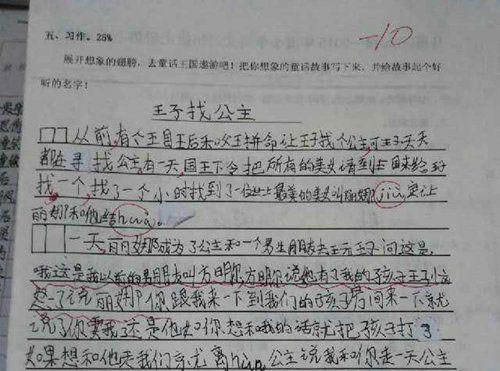 -10
五、习作。28%
展开想象的翅膀，去童话王国遨游吧！把你想象的童话故事写下来，并给故事起个好
听的名字！
王子找公主
从前，有个王国王后和国王拼命让王子找个公主可王子天天
都在寻找公主，有一天，国王下令把所有的美女请到王国来给王子
找一个，找了一个小时找到了一位世上最美的美女叫丽娜，jiu要让
丽娜和他结hun。
一天丽娜成为了公主和一个男生朋友去玩王子问这是，
哦这是我以前的男朋友叫方明，方明你说她有了我的孩子王子
了说丽娜？你跟我来一下到我们的孩子房间来一下就
说了你要我这是他的你想和我的话就把孩子打了
如果想和他走我们就离hun公主说我和你走一天公主